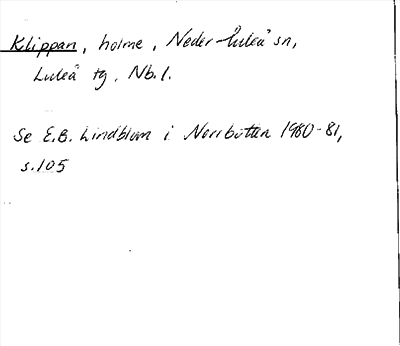 Klippan, holme, Neder-Luleå sn,
Luleå tg, Nb. l.
Se E.B. Lindblom i Norrbotten 1980-81,
s. 105